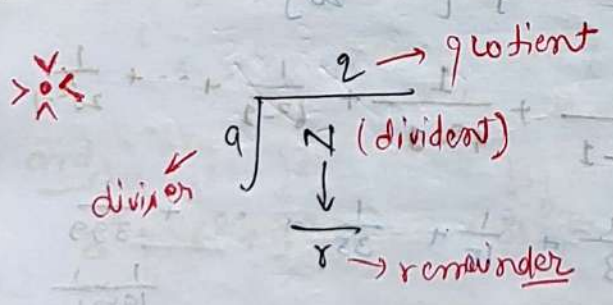 q → quotient
a N (divident)
divisor
r → remainder